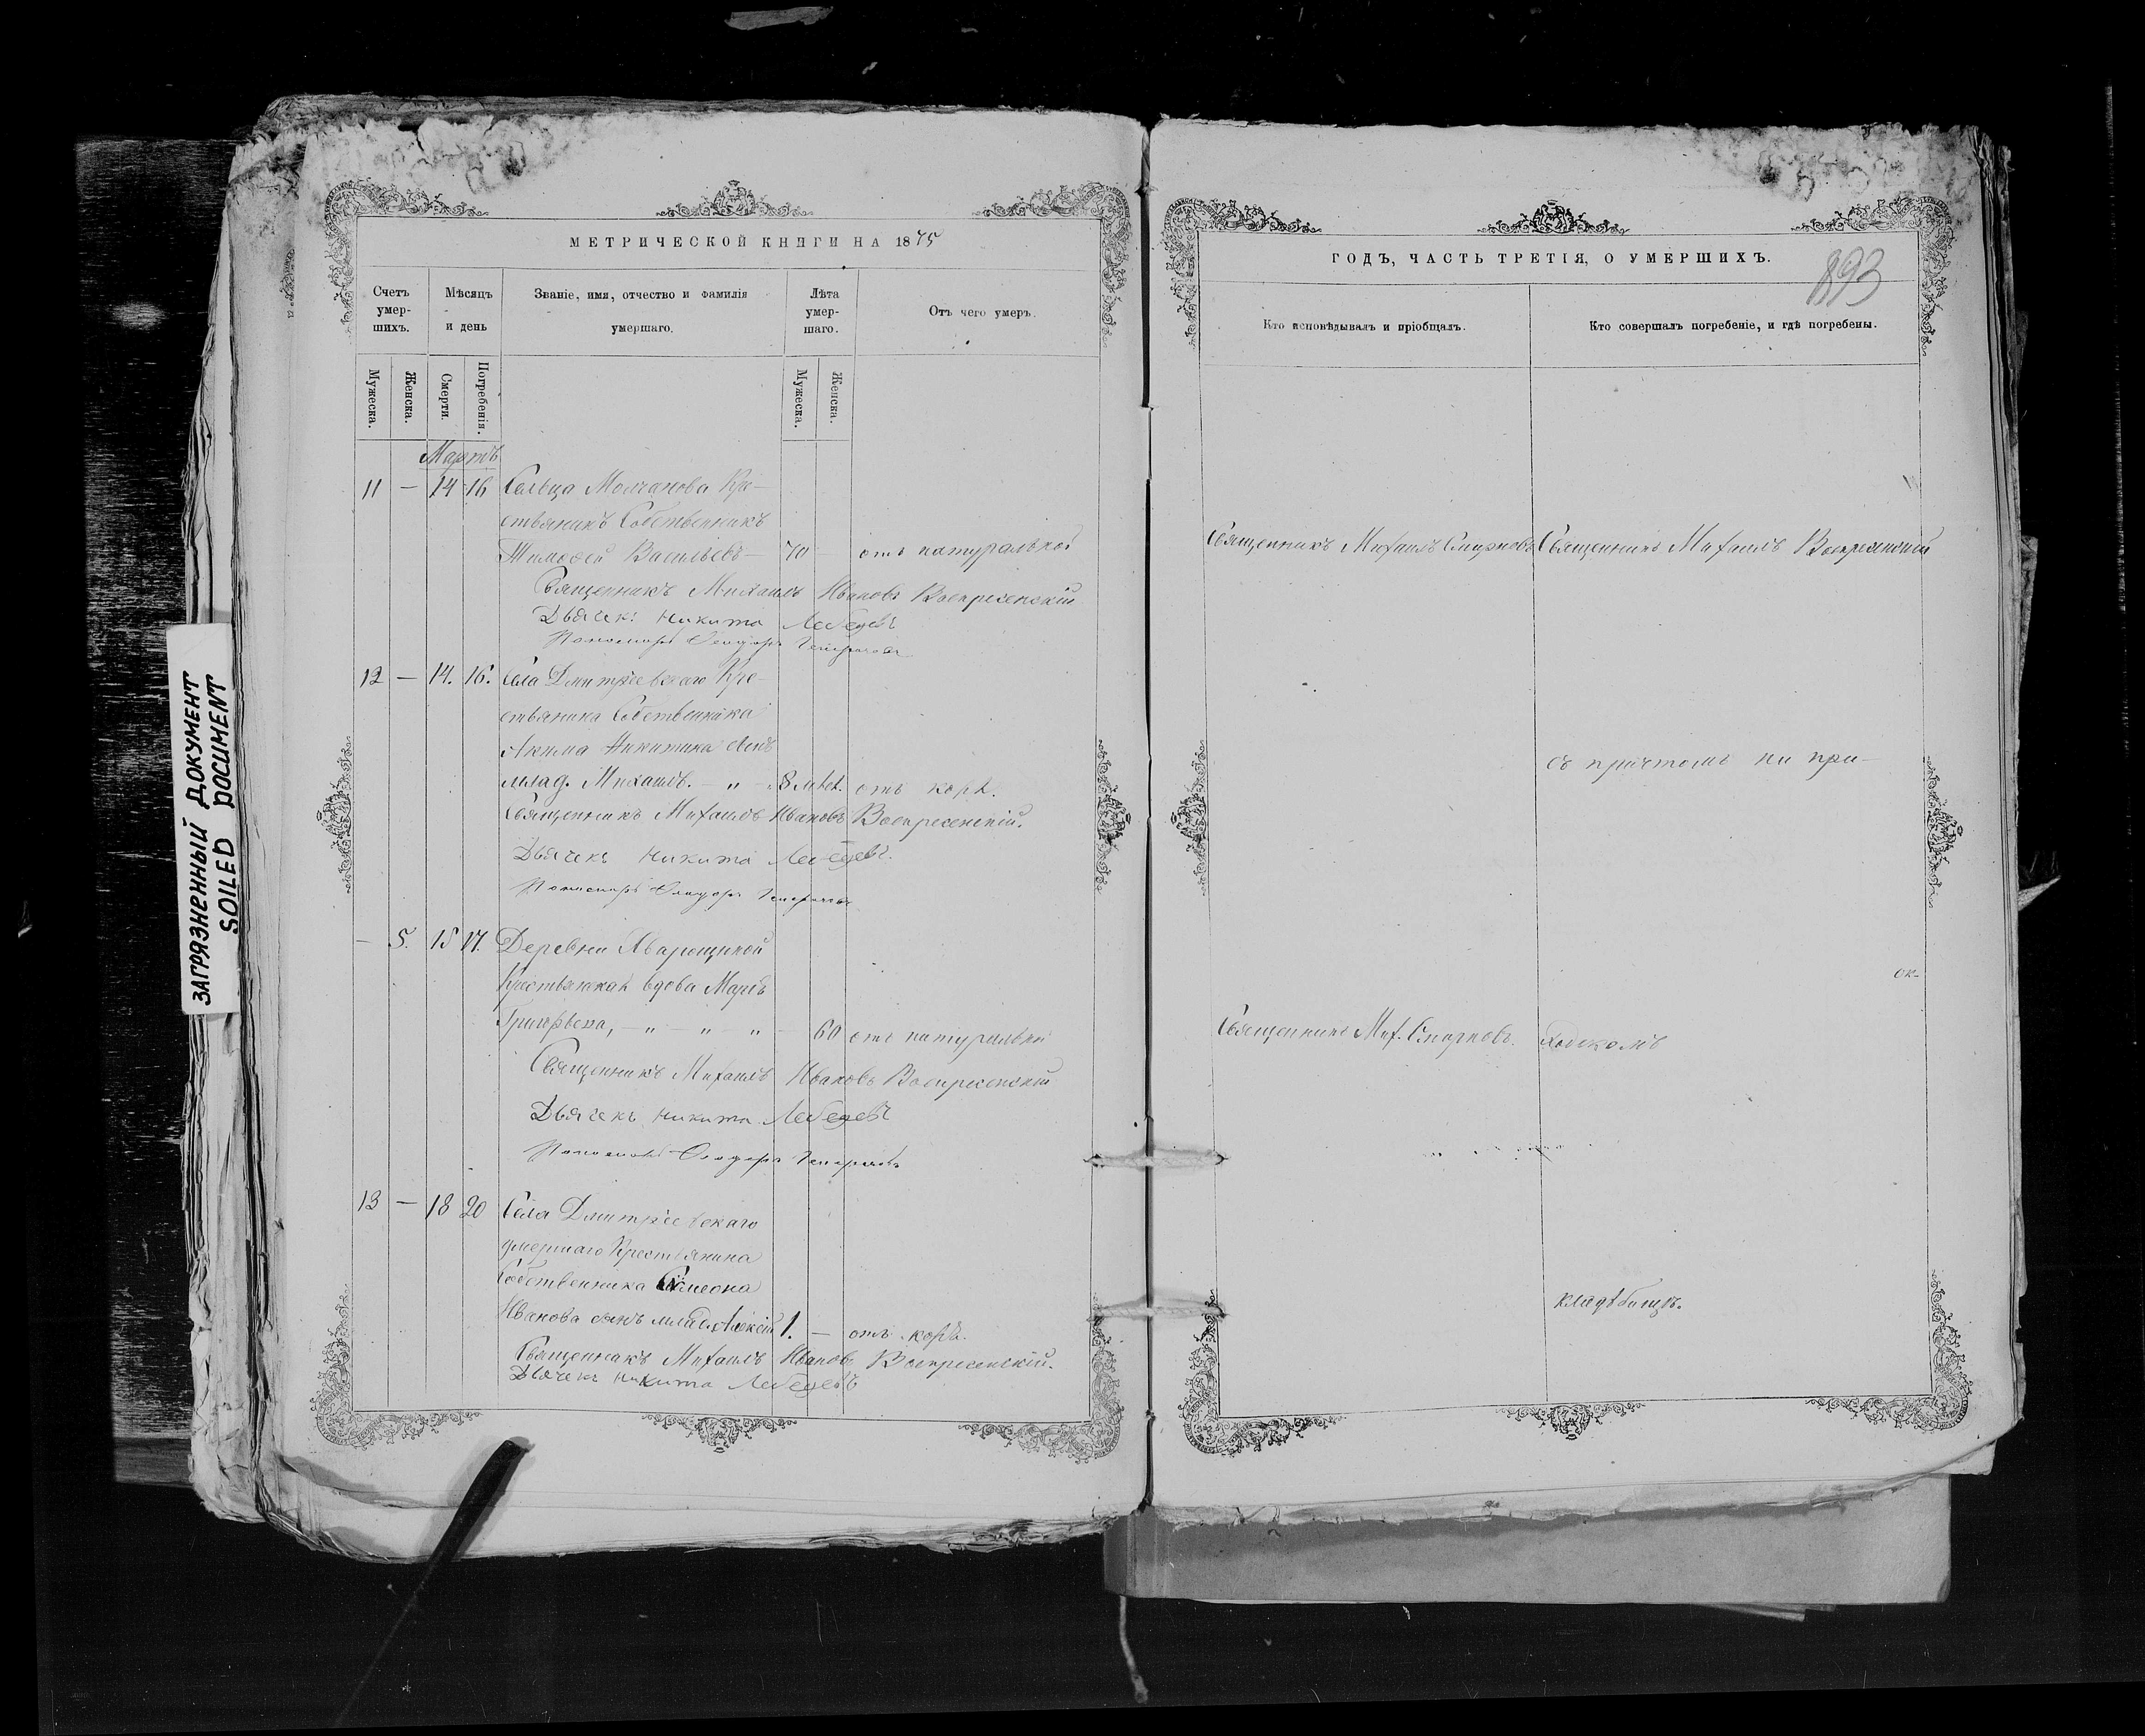 МЕТРИЧЕСКОЙ КНИГИ НА 1875
Счетъ умер-шихъ.
Мѣсяцъ и день
Званіе, имя, отчество и фамилія умершаго.
Лѣта умер-шаго.
Отъ чего умеръ.
Мужеска.
Женска.
Смерти.
Погребенія.
Мужеска.
Женска.
Мартъ
11 — 14 16 Сельца Молчанова Кре-
стьянинъ Собственникъ
Тимофей Васильевъ — 70 отъ натуральной
Священникъ Михаилъ Ивановъ Воскресенскій
Дьячекъ Никита Лебедевъ
Пономарь Ѳеодоръ
12 — 14. 16. Села Дмитріевскаго Кре-
стьянина Собственника
Акима Никитина сынъ
млад. Михаилъ. — " — 8 отъ кори.
Священникъ Михаилъ Ивановъ Воскресенскій.
Дьячекъ Никита Лебедевъ.
Пономарь Ѳеодоръ
— 5. 15 17. Деревни
Крестьянская вдова
Григорьева, — " — " — " — 60 отъ натуральной
Священникъ Михаилъ Ивановъ Воскресенскій
Дьячекъ Никита Лебедевъ
Пономарь Ѳеодоръ
13 — 18 20 Села Дмитріевскаго
умершаго Крестьянина
Собственника Симеона
Иванова сынъ млад. Алексій 1. — отъ кори.
Священникъ Михаилъ Ивановъ Воскресенскій.
Дьячекъ Никита Лебедевъ
ГОДЪ, ЧАСТЬ ТРЕТІЯ, О УМЕРШИХЪ.
893
Кто исповѣдывалъ и пріобщалъ.
Кто совершалъ погребеніе, и гдѣ погребены.
Священникъ Михаилъ Смирновъ Священникъ Михаилъ Воскресенскій
съ причтомъ на при-
Священникъ Мих. Смирновъ. ходскомъ
кладбищѣ.
ЗАГРЯЗНЕННЫЙ ДОКУМЕНТ
SOILED DOCUMENT